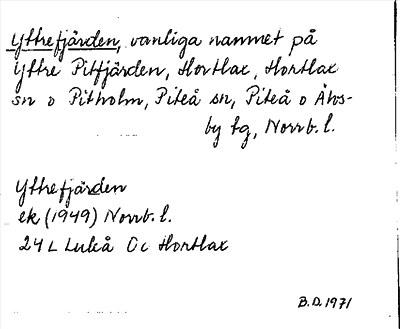 Yttrefjärden, vanliga namnet på
Yttre Pitfjärden, Hortlax, Hortlax
sn o Pitholm, Piteå sn, Piteå o Älvs-
by tg, Norrb. l.
Yttrefjärden
ek (1949) Norrb. l.
24 L Luleå Cc Hortlax
B.D. 1971